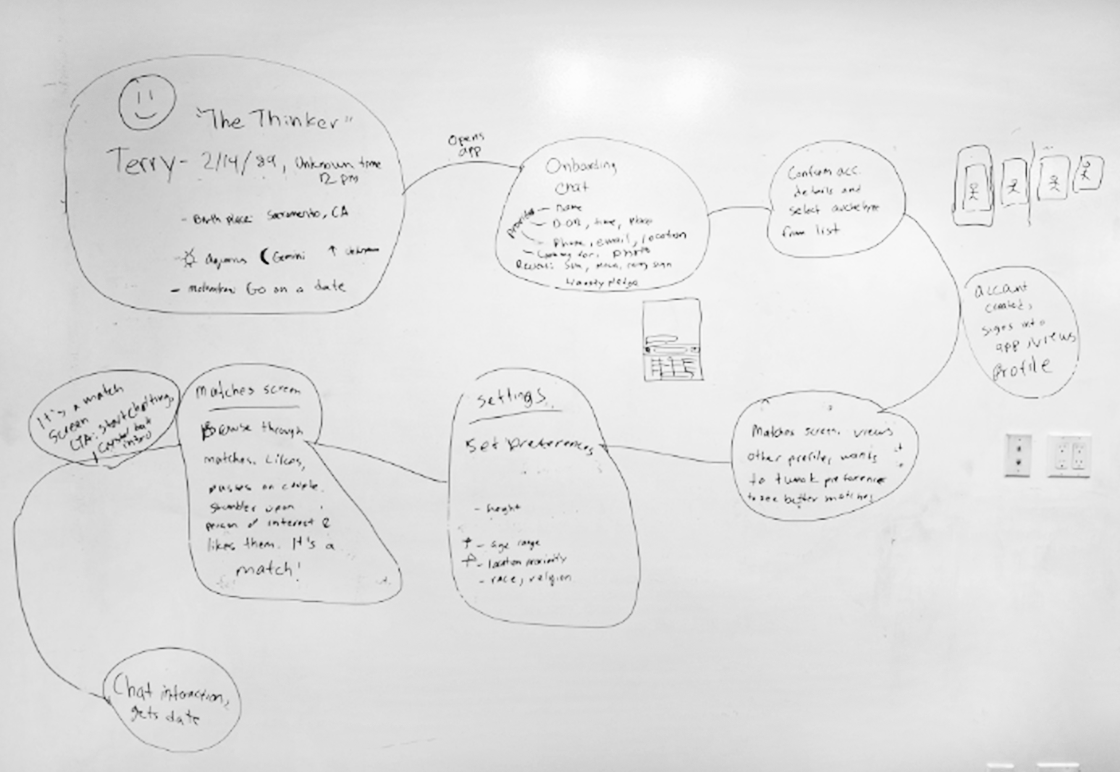 "The Thinker"
Terry - 2/14/89, Unknown time
12 pm
- Birth place: Sacramento, CA
Aquarius Gemini ↑ Unknown
- Motivation: Go on a date
Opens
app
Onboarding
chat
- Name
- D.O.B, time, place
- Phone, email, location
- Looking for, photo
Reveal: Sun, moon, rising sign
Honesty pledge
Confirm acc.
details and
select archetype
from list
account
created,
signs into
app, views
profile
Matches screen, views
other profiles, wants
to tweak preferences
to see better matches
Settings
Set preferences
- height
- age range
- location proximity
- race, religion
Matches screen
Browse through
matches. Likes,
passes on couple.
stumbles upon
person of interest &
likes them. It's a
match!
It's a match
screen
CTA: start chatting,
intro
Chat interaction,
gets date